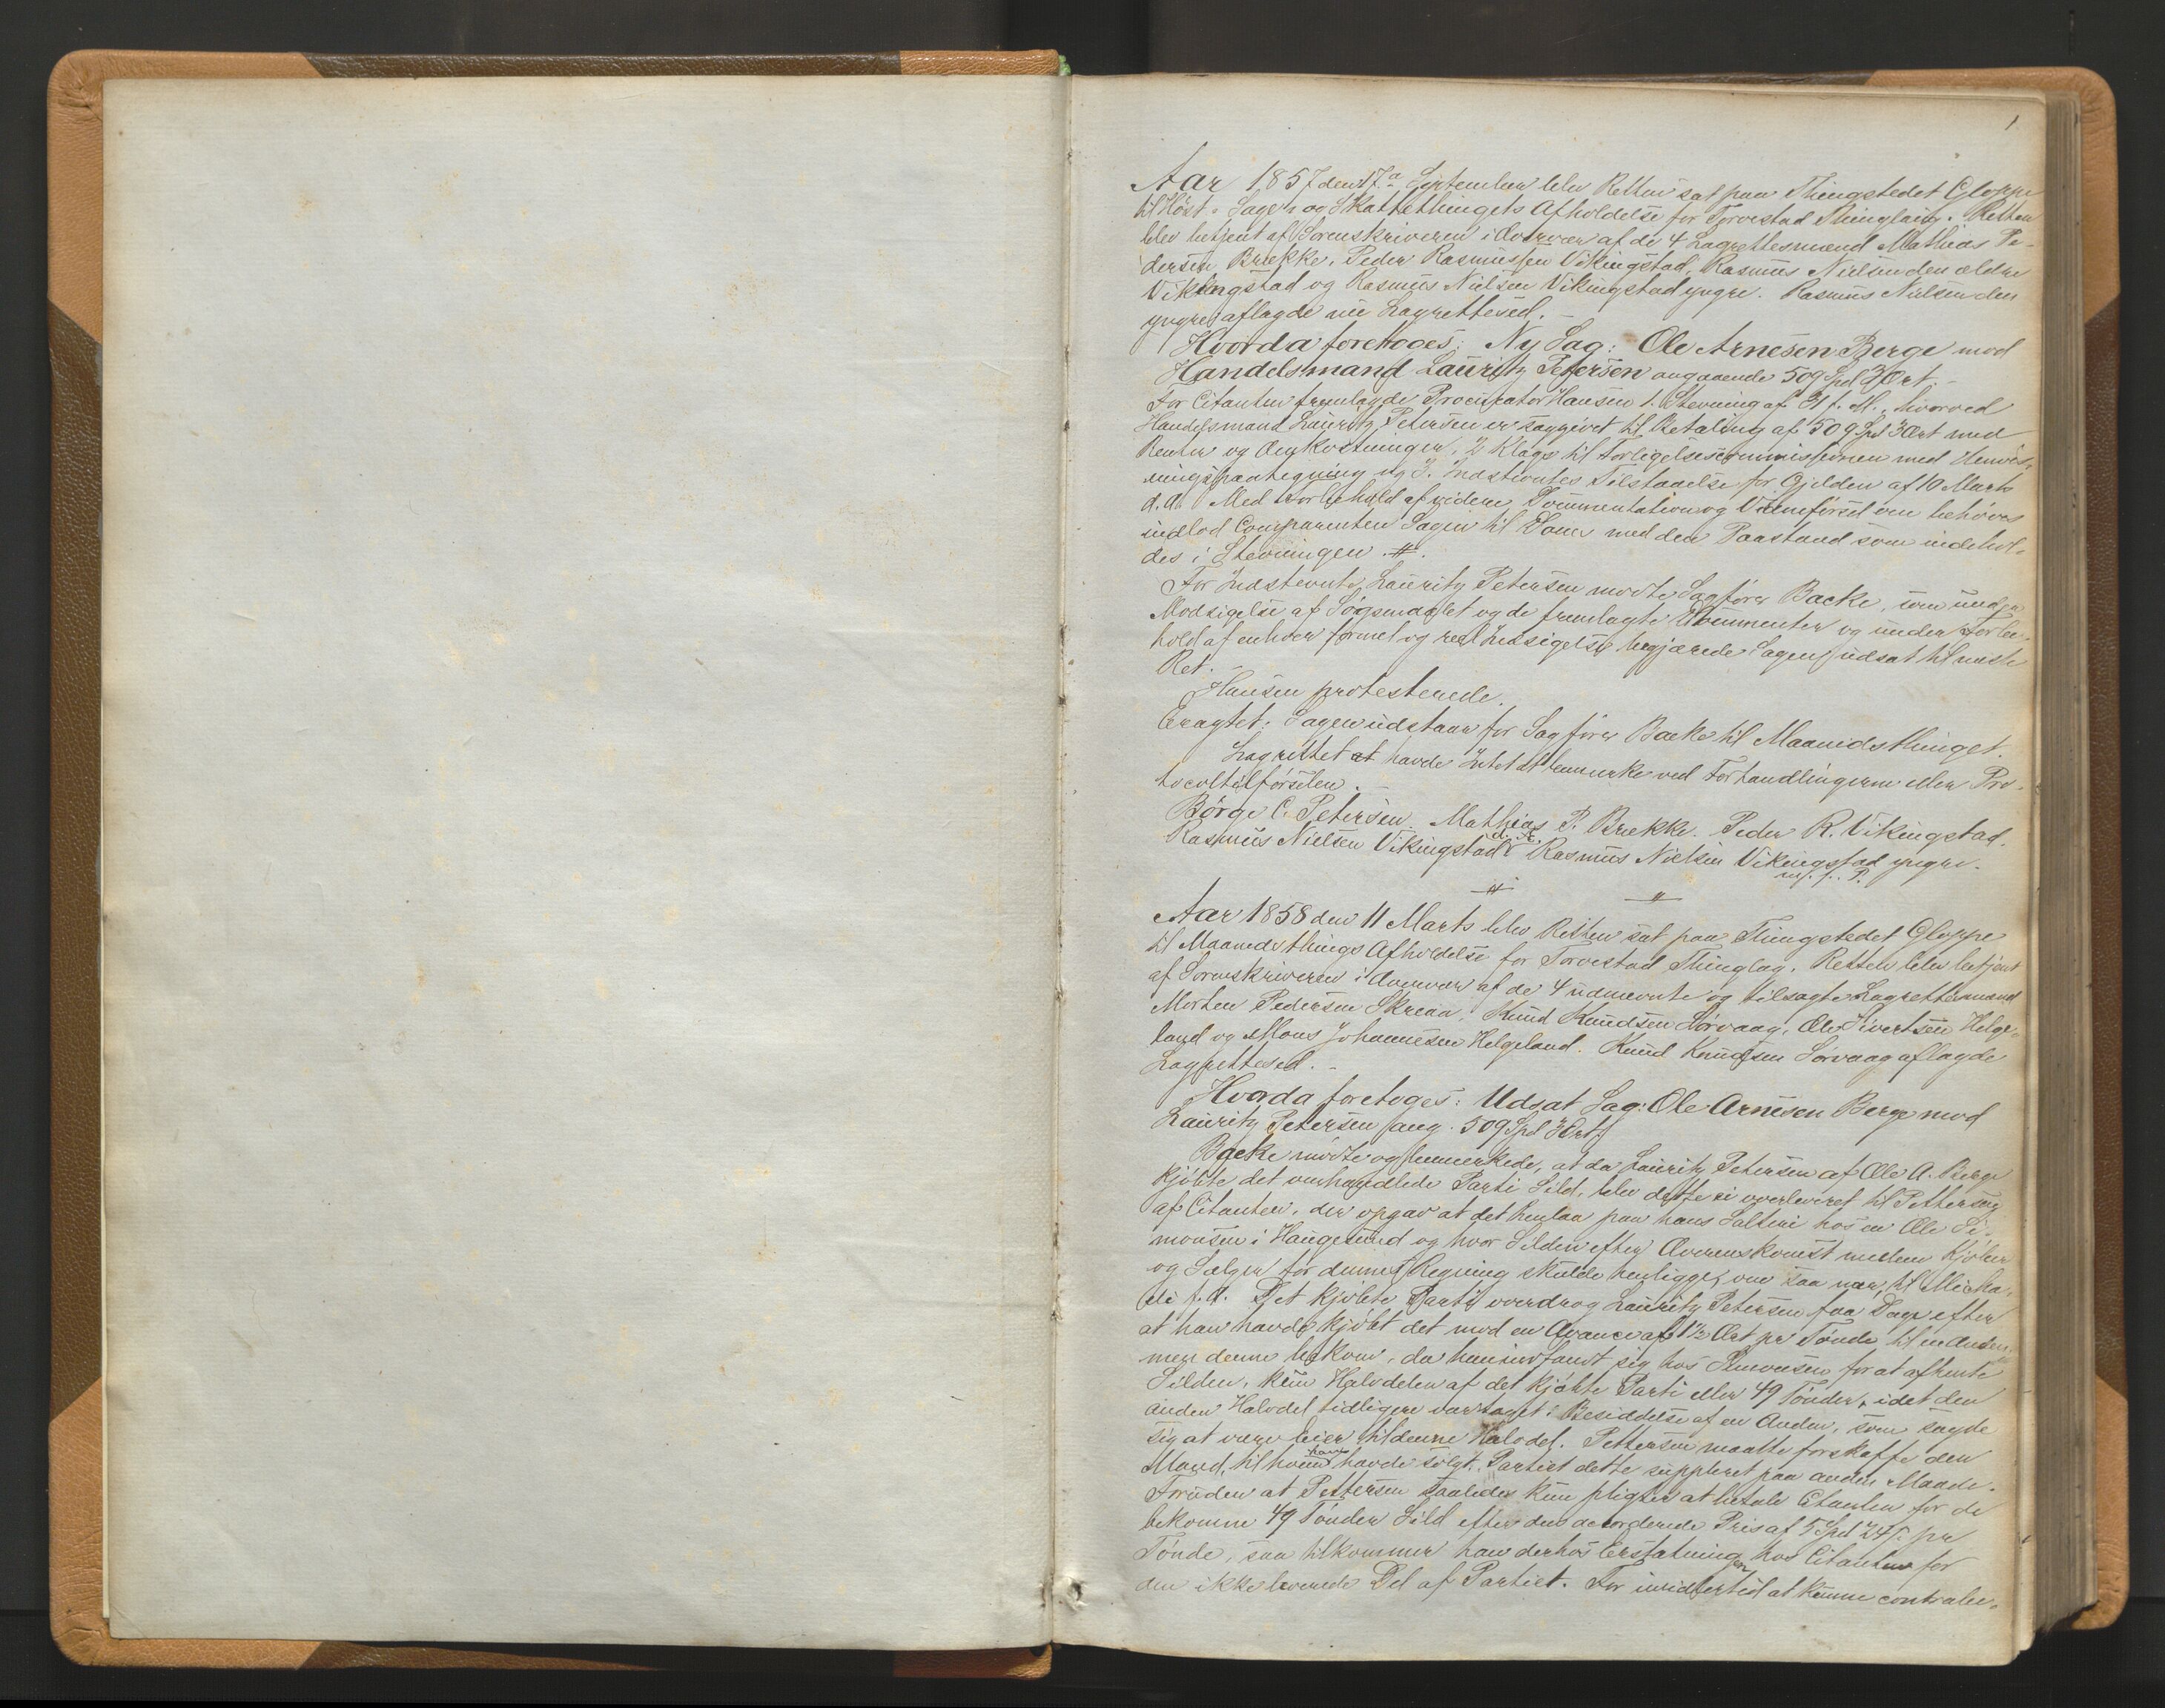 1
Aar 1857 den 17de September blev Retten sat paa Thingstedet Gloppe
til Høst- Sage- og Skattethingets Afholdelse for Torvestad Thinglaug. Retten
blev betjent af Sorenskriveren i Overvær af de 4 Lagrettesmænd Mathias Pe-
dersen Brekke, Peder Rasmussen Vikingstad, Rasmus Nielsen den ældre
Vikingstad og Rasmus Nielsen Vikingstad yngre. Rasmus Nielsen den
yngre aflagde nu Lagrettesed. –
Hvorda foretoges: Ny Sag: Ole Arnesen Berge mod
Handelsmand Lauritz Petersen angaaende 509 Spd 3 Ort. –
For Citanten fremlagde Procurator Hansen 1. Stevning af 31 f. M., hvorved
Handelsmand Lauritz Petersen er sagsøgt til Betaling af 509 Spd 3 Ort med
Renter og Omkostninger, 2 Klage til Forligelsescommissionen med Henvis-
ningspaategning og 3. Indstevntes Tilstaaelse for Gjelden af 10 Marts
d. A. Med Forbehold af videre Documentation og Vidneførsel om behøves
indlod Comparenten Sagen til Doms med den Paastand som indehol-
des i Stevningen. #.
For Indstevnte Lauritz Petersen mødte Sagfører Backe, som under
Modsigelse af Søgsmaalet og de fremlagte Documenter og under Forbe-
hold af enhver formel og reel Indsigelse begjærede Sagen udsat til næste
Ret. –
Hansen protesterede.
Eragtet: Sagen udstaar for Sagfører Backe til Maanedsthinget.
Lagrettet at havde Intet at bemærke ved Forhandlingerne eller Pro-
tocoltilførselen. –
Børge C. Petersen. Mathias P. Brekke. Peder R. Vikingstad.
Rasmus Nielsen Vikingstad d. Æ. Rasmus Nielsen Vikingstad yngre.
m. f. P.
# #
Aar 1858 den 11 Marts blev Retten sat paa Thingstedet Gloppe
til Maanedsthings Afholdelse for Torvestad Thinglag. Retten blev betjent
af Sorenskriveren i Overvær af de 4 udnævnte og tilsagte Lagrettemænd
Morten Pedersen Skreaa, Knud Knudsen Sørvaag, Ole Sivertsen Helge-
land og Mons Johannesen Helgeland. Knud Knudsen Sørvaag aflagde
Lagrettesed. –
Hvorda foretoges: Udsat Sag: Ole Arnesen Berge mod
Lauritz Petersen (ang. 509 Spd 3 Ort)
Backe mødte og bemærkede, at da Lauritz Petersen af Ole A. Berge
kjøbte det omhandlede Parti Sild, blev dette ei overleveret til Pettersen
af Citanten, der opgav at det henlaa paa hans Salteri hos en Ole Si-
monsen i Haugesund og hvor Silden efter Overenskomst mellem Kjøber
og Sælger for dennes Regning skulde henligge, om saa var, til Micha-
eli f. A. Det kjøbte Parti overdrog Lauritz Petersen faa Dage efter
at han havde kjøbt det mod en Avance af 1½ Ort pr Tønde til en Anden,
men denne bekom, da han indfandt sig hos Simonsen for at afhente
Silden, kun Halvdelen af det kjøbte Parti eller 49 Tønder, idet den
anden Halvdel tidligere var taget i Besiddelse af en Anden, som sagde
sig at være Eier til denne Halvdel. Pettersen maatte forskaffe den
Mand, til hvem han havde solgt Partiet dette suppleret paa anden Maade.
Foruden at Pettersen saaledes kun pligter at betale Citanten for de
bekomne 49 Tønder Sild efter den accorderede Pris af 5 Spd 24 s. pr
Tønde, saa tilkommer han derhos Erstatning hos Citanten for
den ikke leverede Del af Partiet. For imidlertid at kunne contrabe-